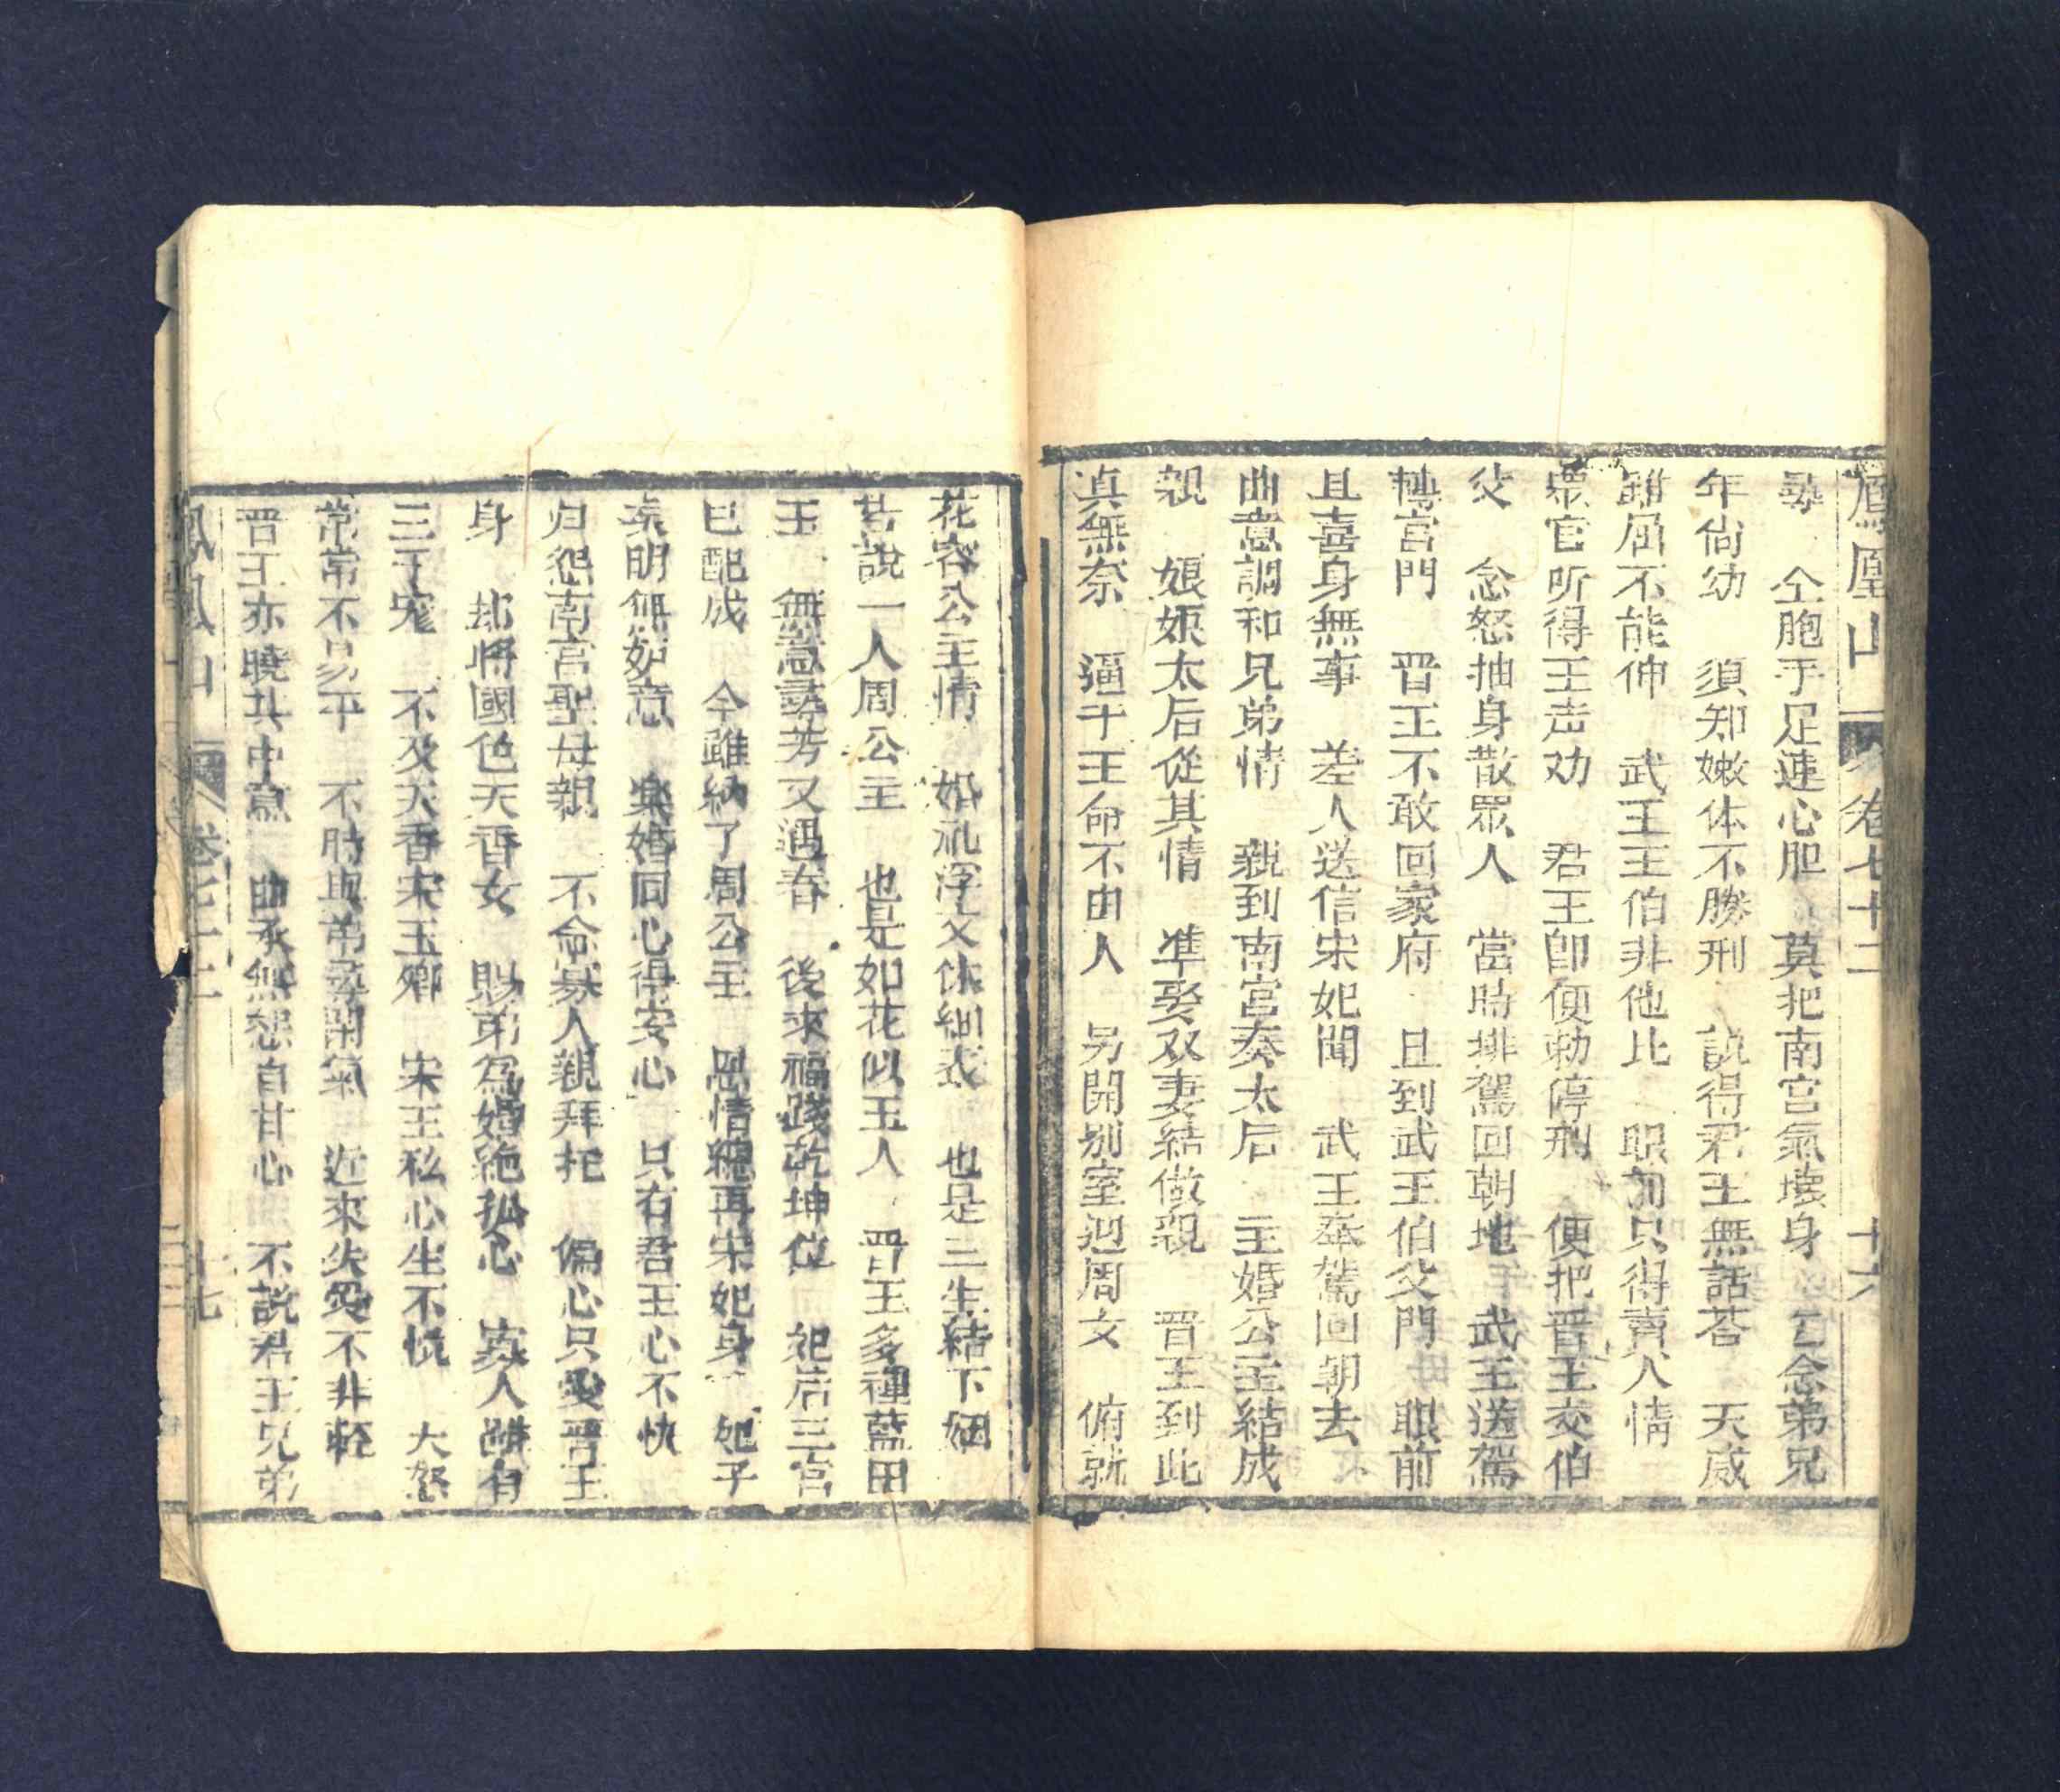 鳳凰山 卷七十二 十六
尋 仝胞手足連心胆 莫把南宮氣壞身 念弟兄
年尙幼 須知嫩体不勝刑 說得君王無話荅 天威
雖屈不能伸 武王王伯非他比 眼前只得賣人情
眾官听得王言劝 君王卽便勅停刑 便把晋王交伯
父 念怒抽身散眾人 當時排駕回朝地 武王送駕
轉宮門 晋王不敢回家府 且到武王伯父門 眼前
且喜身無事 差人送信宋妃聞 武王奉駕回朝去
曲意調和兄弟情 親到南宮奏太后 主婚公主結成
親 娘娘太后從其情 準娶双妻結做親 晋王到此
真無奈 逼于王命不由人 另開别室迎周女 俯就
花容公主情 婚礼浮文休細表 也是三生結下姻
若說一人周公主 也是如花似玉人 晋王多種藍田
玉 無意尋芳又遇春 後來福踐乾坤位 妃后三宮
已配成 今雖納了周公主 恩情總再宋妃身 妃子
柔明無妒意 樂婚同心得安心 只有君王心不快
归怨南宮聖母親 不命寡人親拜托 偏心只愛晋王
身 却將國色天香女 賜弟爲婚絶孤心 寡人雖有
三千寵 不及天香宋玉卿 宋王私心生不悅 大怒
常常不易平 不時與弟尋閑氣 近來失愛不非輕
晋王亦曉其中意 曲承無怨自甘心 不說君王兄弟
鳳凰山 卷七十二 十七